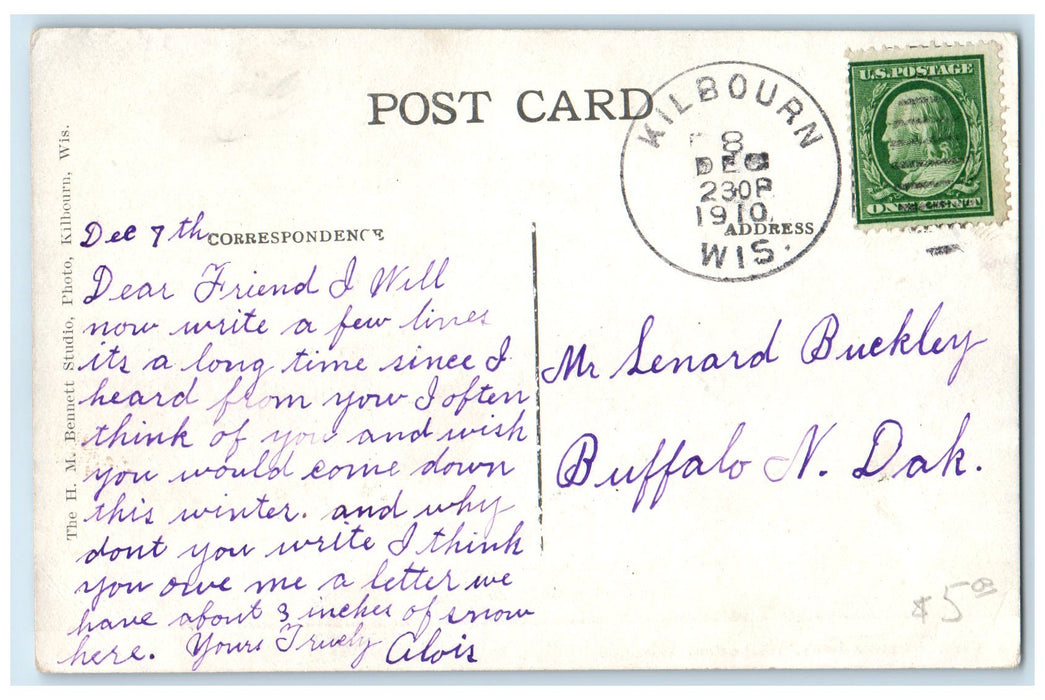 POST CARD
KILBOURN
8
DEC
230P
1910
WIS.
U.S. POSTAGE
The H. M. Bennett Studio, Photo, Kilbourn, Wis.
CORRESPONDENCE
ADDRESS
Dec 7th
Dear Friend I Will
now write a few lines
its a long time since I
heard from yow I often
think of you and wish
you would come down
this winter. and why
dont you write I think
you owe me a letter we
have about 3 inches of snow
here. Yours Truely Alois
Mr Lenard Buckley
Buffalo N. Dak.
$5.00